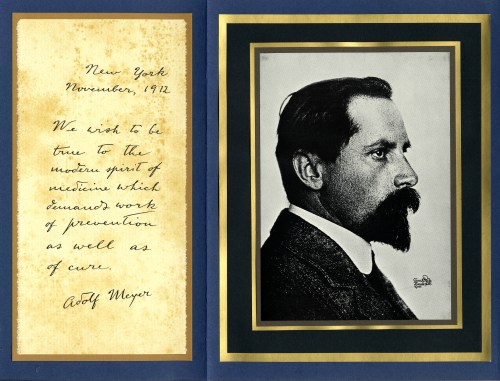 New York
November, 1912
We wish to be
true to the
modern spirit of
medicine which
demands work
of prevention
as well as
of cure.
Adolf Meyer